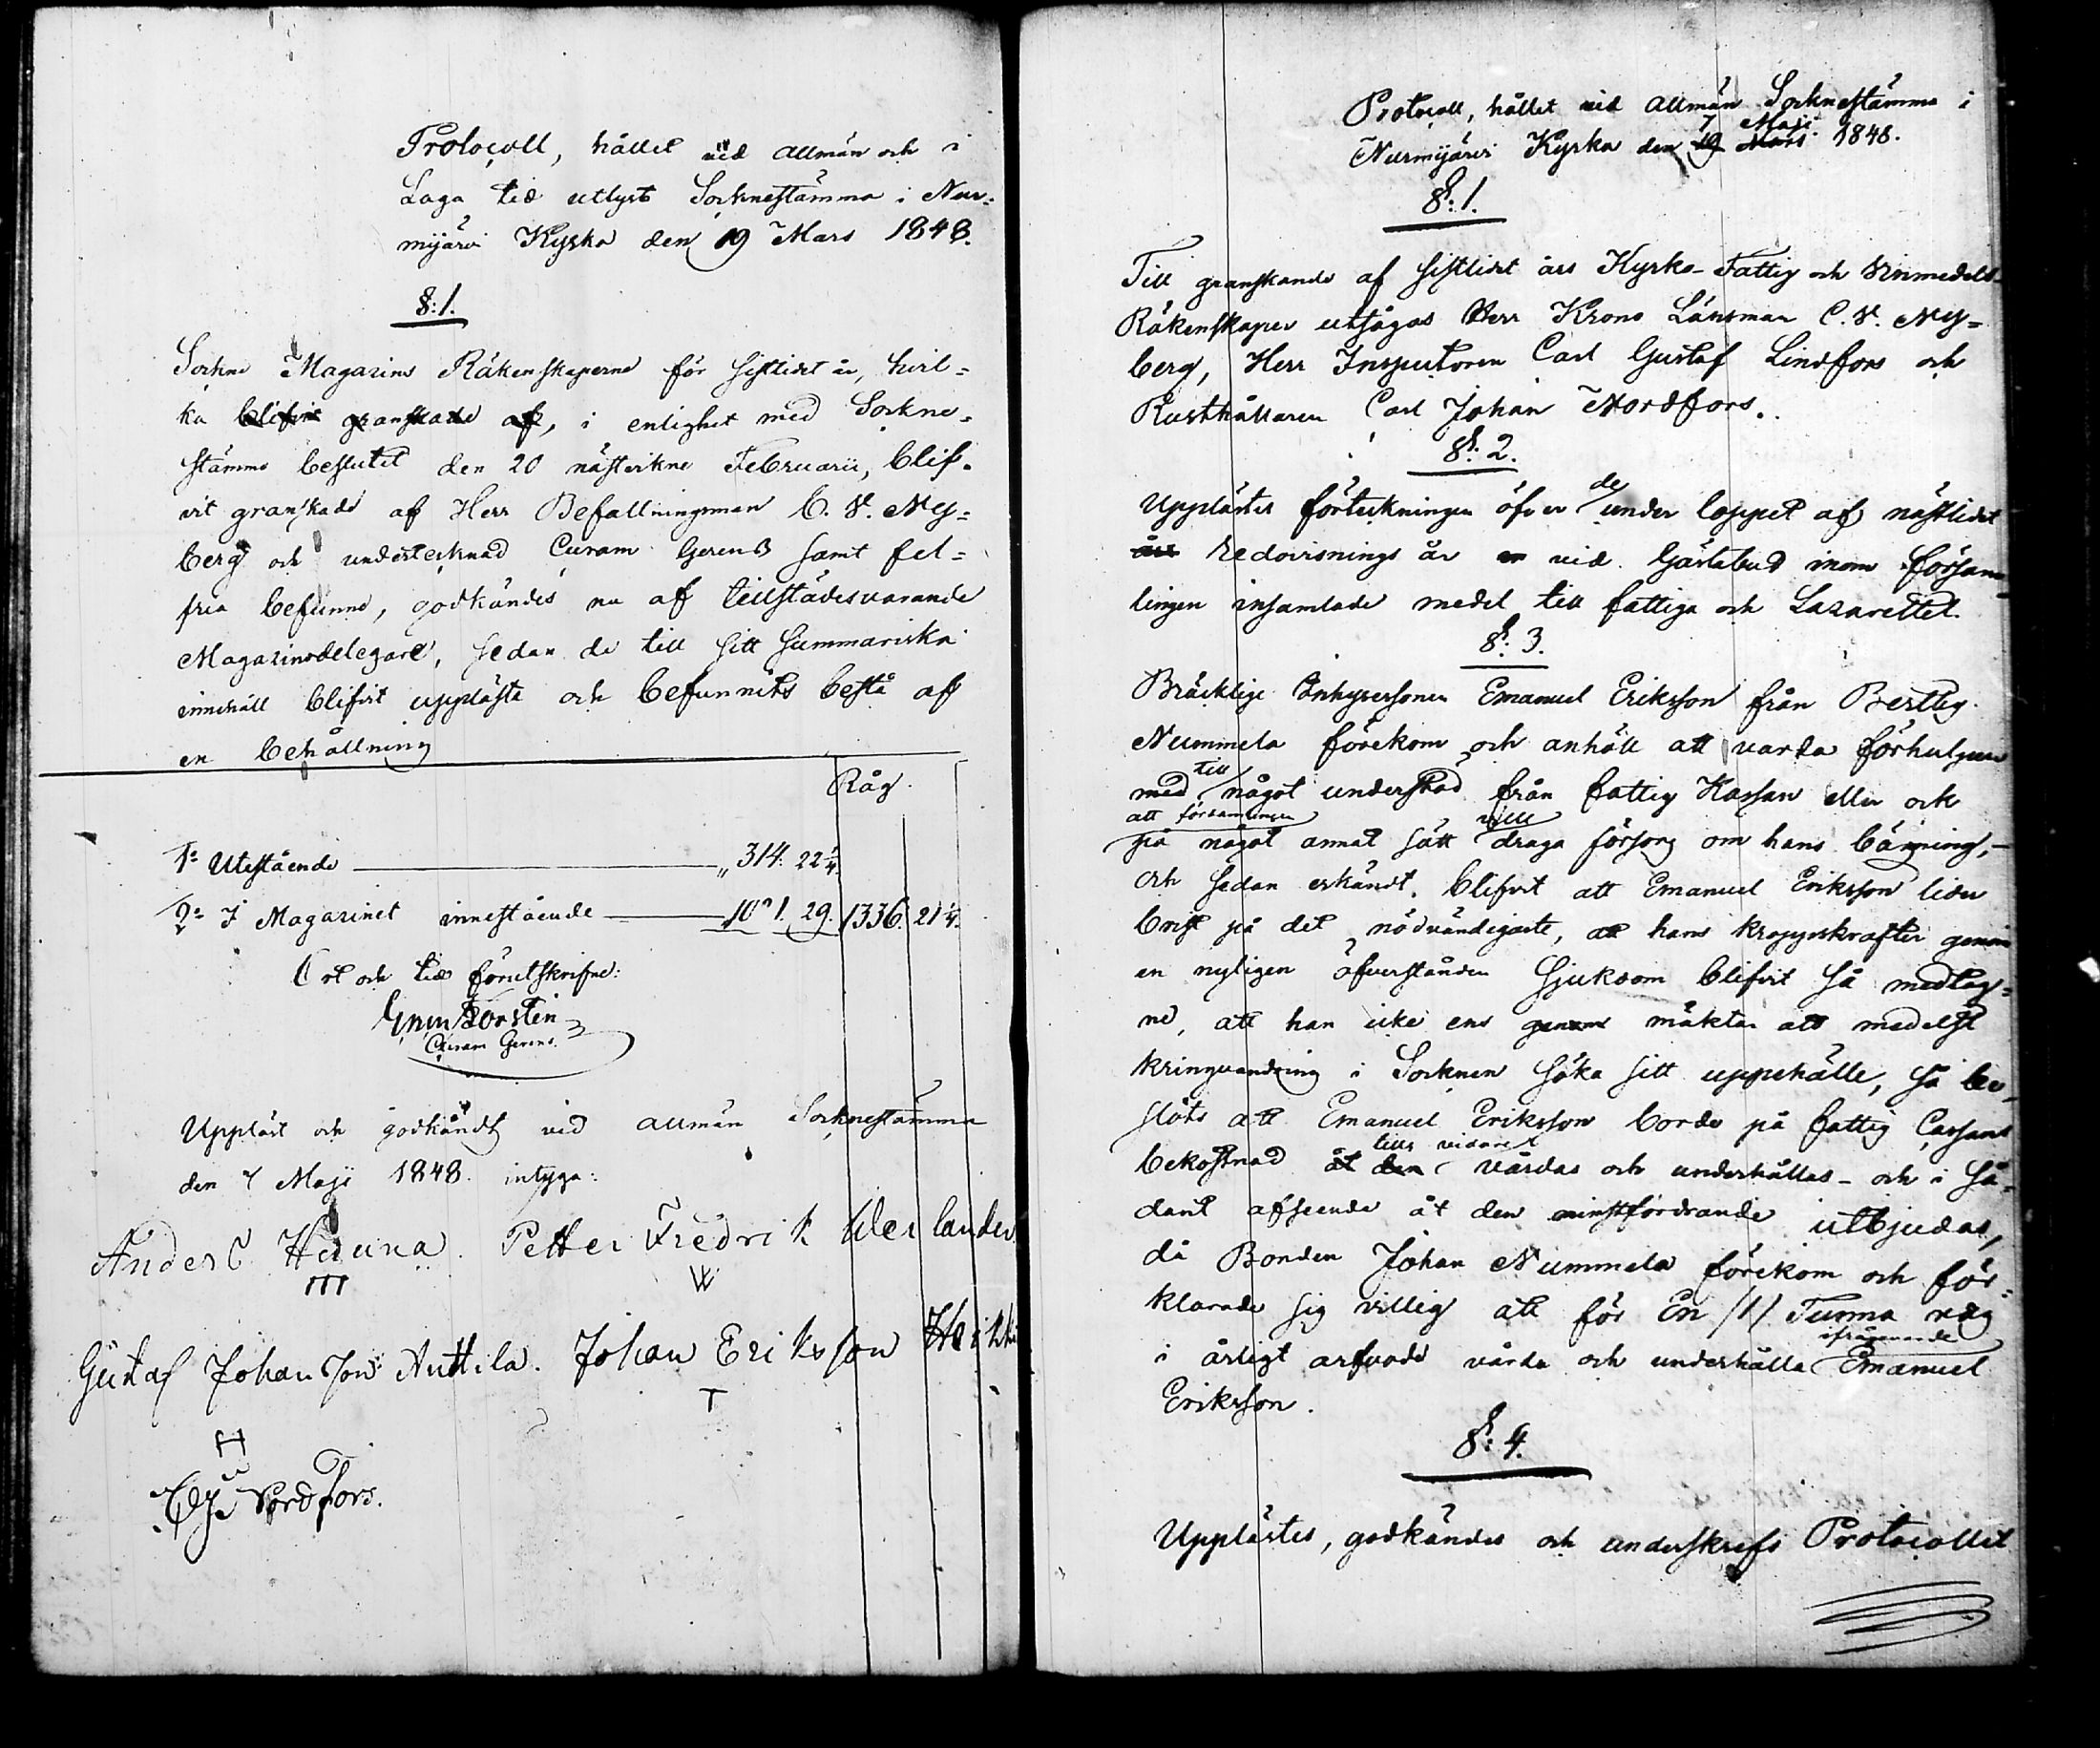 Protocoll, hållet vid allmän och i
Laga tid utlyst Socknestämma i Nur=
mijärvi Kyrka den 19 Mars 1848.
§:1.
Sockne Magazins Räkenskaperne för sistlidit år, hvil=
ka blifvit granskade af, i enlighet med Sockne=
stämmo beslutet den 20 nästvikne Februarii, blif=
vit granskade af Herr Befallningsman C. V. Ny=
berg och undertecknad Curam Gerens samt fel=
fria befunne, godkändes nu af tillstädesvarande
Magazinsdelegare, sedan de till sitt summariska
innehåll blifvit uppläste och befunnits bestå af
en behållning
Råg.
1:o Utestående „ 314. 22 1/4.
2:o I Magazinet innestående 29. 1336. 21 1/4.
Ort och tid förutskrifne:
Curam Gerens.
Uppläst och godkändt vid allmän Socknestämma
den 7 Maji 1848. intyga:
Anders Petter Fredrik
Gustaf Johansson Anttila. Johan Eriksson Heikki
Nordfors.
Protocoll, hållet vid allmän Socknestämma i
7 Maji
Nurmijärvi Kyrka den 19 Mars 1848.
§:1.
Till granskande af sistlidet års Kyrko- Fattig och Vinmedels
Räkenskaper utsågos Herr Krono Länsman C. V. Ny=
berg, Herr Inspectoren Carl Gustaf Lindfors och
Rusthållaren Carl Johan Nordfors.
§:2.
de
Upplästes förteckningen öfver under loppet af nästlidet
års redovisnings år vid Gästabud inom försam
lingen insamlade medel till fattiga och Lazarettet.
§:3.
Bräcklige Inhysesonen Emanuel Eriksson från Bertby
Nummela förekom och anhöll att varda förhulpen
till
med något understöd från fattig Kassan eller ock
att församlingen ville
på något annat sätt draga försorg om hans bärgning,
och sedan erkändt blifvit att Emanuel Eriksson lider
brist på det nödvändigaste, att hans kroppskrafter genom
en nyligen öfverstånden sjukdom blifvit så medtag=
ne, att han icke ens genom mäktar att medelst
kringvandring i Socknen söka sitt uppehälle, så be=
slöts att Emanuel Eriksson borde på fattig Cassans
tills vidare
bekostnad åt den vårdas och underhållas – och i så=
dant afseende åt den minstfordrande utbjudas,
då Bonden Johan Nummela förekom och för=
klarade sig villig att för En /1/ Tunna råg
ifrågavarande
i årligt arfvode vårda och underhålla Emanuel
Eriksson.
§:4.
Upplästes, godkändes och underskrefs Protocollet